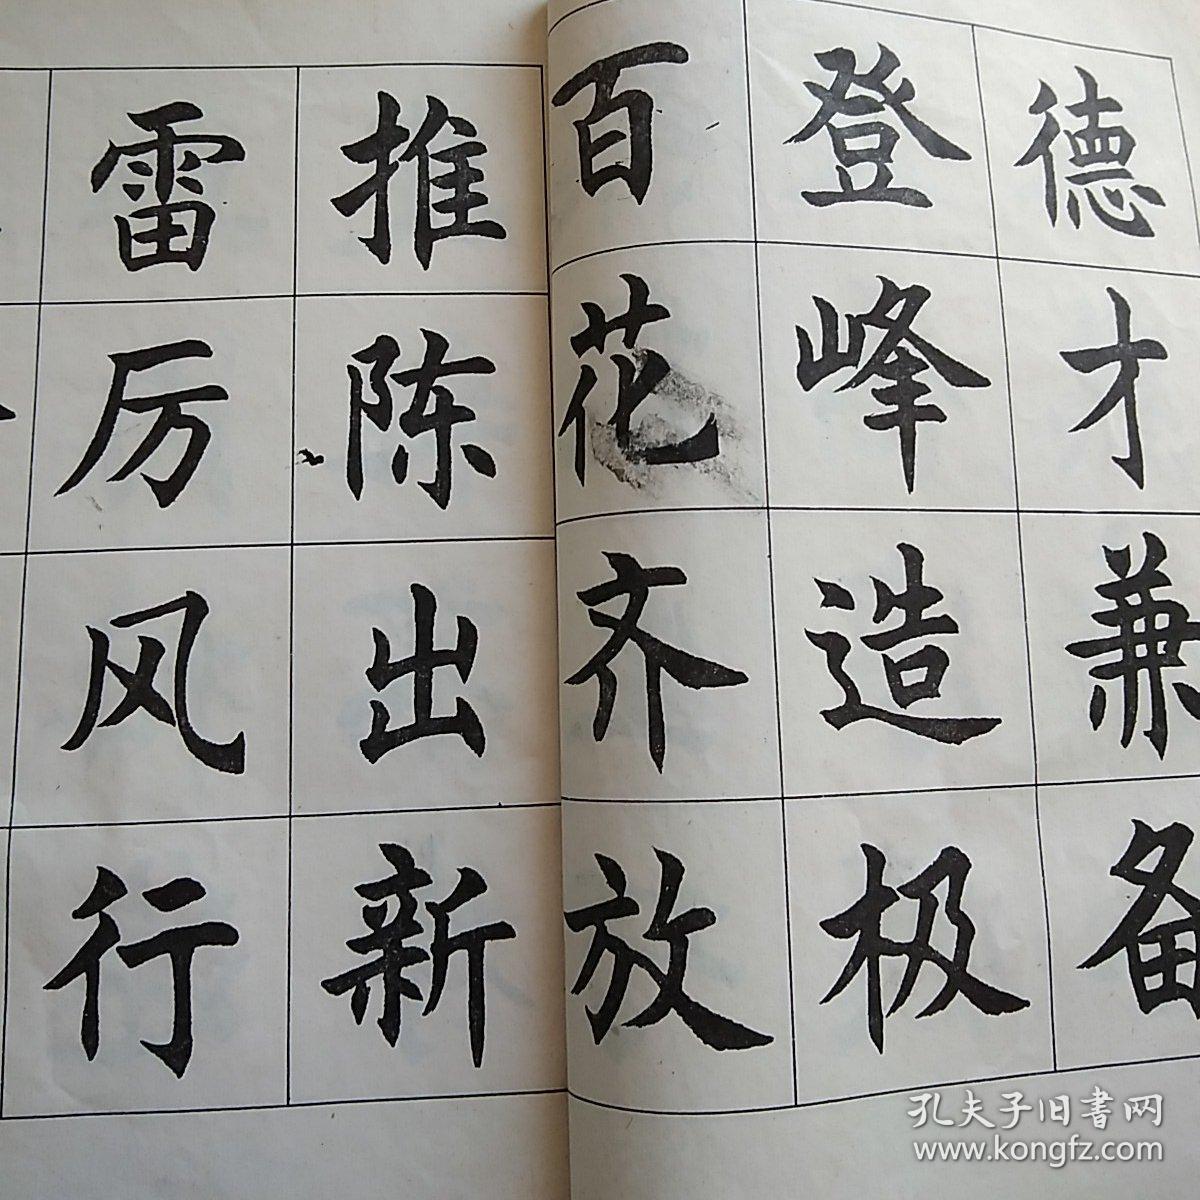 德才兼备
登峰造极
百花齐放
推陈出新
雷厉风行
孔夫子旧書网
www.kongfz.com